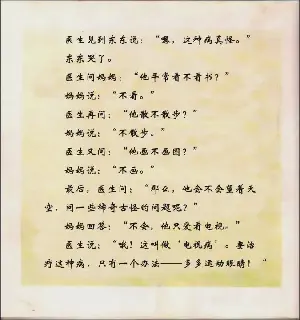 医生见到东东说：“嘿，这种病真怪。”
东东哭了。
医生问妈妈：“他平常看不看书？”
妈妈说：“不看。”
医生再问：“他散不散步？”
妈妈说：“不散步。”
医生又问：“他画不画图？”
妈妈说：“不画。”
最后，医生问：“那么，他会不会望着天
空，问一些稀奇古怪的问题呢？”
妈妈回答：“不会，他只爱看电视。”
医生说：“哦！这叫做‘电视病’。要治
疗这种病，只有一个办法——多多运动眼睛！“